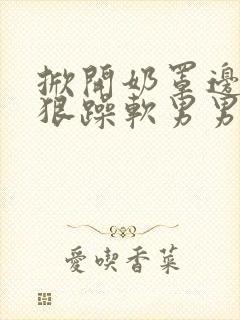 掀開奶罩邊
狠躁軟男男
愛喫香菜